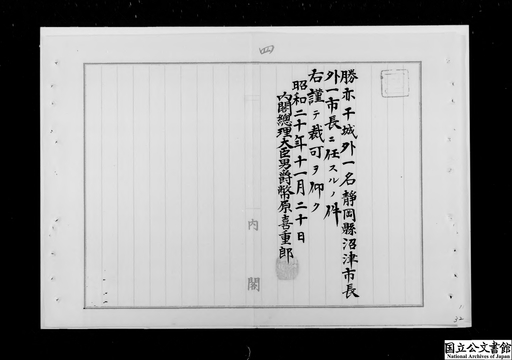 四
勝亦干城外一名静岡縣沼津市長
外一市長ニ任スルノ件
右謹テ裁可ヲ仰ク
昭和二十年十一月二十日
内閣總理大臣男爵幣原喜重郎
内閣
32
国立公文書館
National Archives of Japan